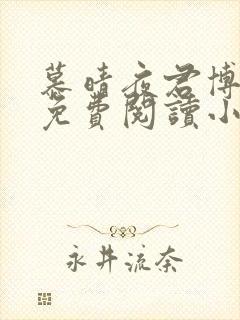 慕晴夜君博
免費閱讀小
永井流奈